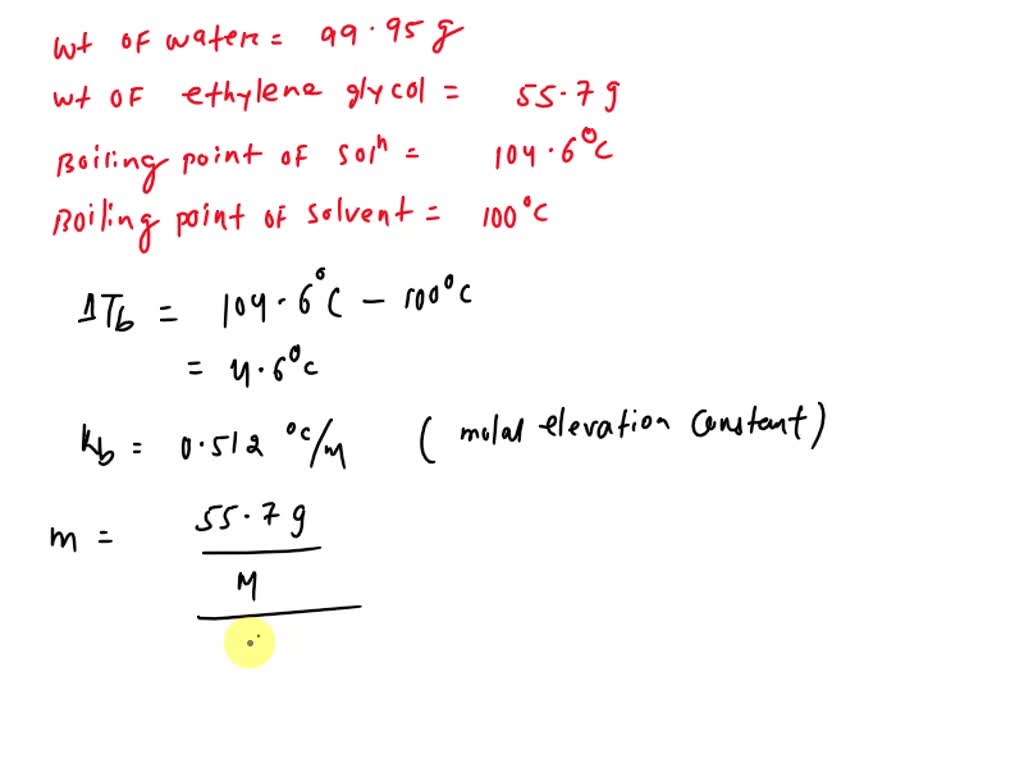 wt of water = 99.95 g
wt of ethylene glycol = 55.7 g
Boiling point of solⁿ = 104.6°C
Boiling point of solvent = 100°C
ΔTb = 104.6°C - 100°C
= 4.6°C
kb = 0.512 °C/m ( molal elevation constant )
m = 55.7 g
M